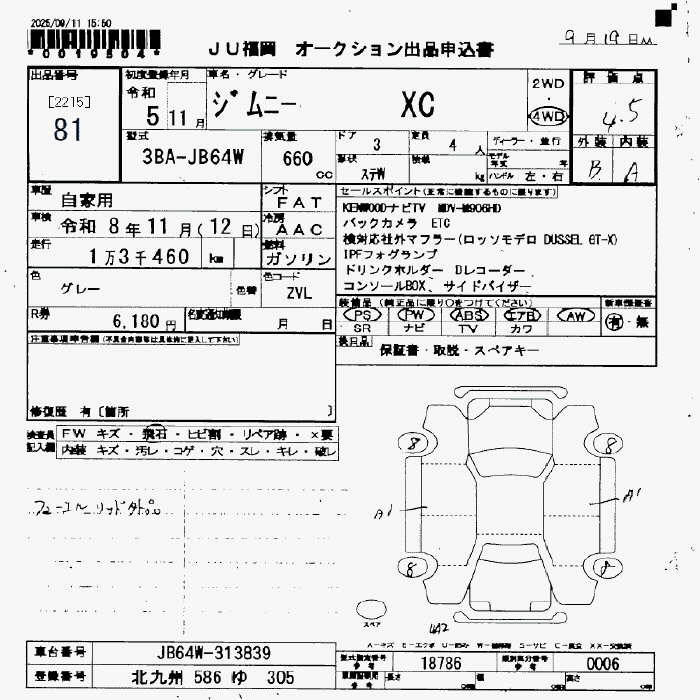 2025/09/11 15:50
*0019504*
JU福岡 オークション出品申込書
9月19日
出品番号
[2215]
81
初度登録年月
令和
5 11月
車名・グレード
ジムニー XC
2WD
4WD
評価点
4.5
外装 内装
B A
型式
3BA-JB64W
排気量
660
cc
ドア
3
定員
4 人
形状
ステW
積載
kg
ディーラー・並行
モデル年式 年
ハンドル 左・右
車歴
自家用
シフト
FAT
車検
令和 8年 11月 (12日)
冷房
AAC
走行
1万3千460 km
燃料
ガソリン
色
グレー
色替
色コード
ZVL
R券
6,180円
名変通知期限
月 日
セールスポイント(正常に機能するものに限ります)
KENWOODナビTV MDV-M906HD
バックカメラ ETC
検対応社外マフラー(ロッソモデロ DUSSEL GT-X)
IPFフォグランプ
ドリンクホルダー Dレコーダー
コンソールBOX、サイドバイザー
装備品(純正品に限り○をつけてください)
PS PW ABS エアB AW
SR ナビ TV カワ
新車保証書
有・無
後日品
保証書・取説・スペアキー
注意事項申告欄(不具合内容等は具体的に記入して下さい)
修復歴 有〔箇所 〕
検査員記入欄
FW キズ・飛石・ヒビ割・リペア跡・×要
内装 キズ・汚レ・コゲ・穴・スレ・キレ・破レ
8
8
A1
A1
8
8
スペア
W2
A-キズ E-エクボ U-凹ミ W-補修跡 S-サビ C-腐食 XX-交換済
車台番号
JB64W-313839
登録番号
北九州 586 ゆ 305
型式指定番号
参考
18786
類別区分番号
参考
0006
長さ cm
幅 cm
高さ cm